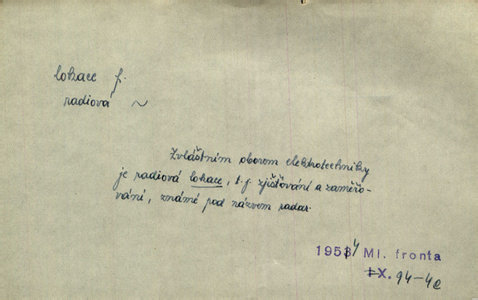 lokace f.
radiová ~
Zvláštním oborem elektrotechniky
je radiová lokace, t. j. zjišťování a zaměřo-
vání, známé pod názvem radar.
1954 Ml. fronta
IX. 94-4e